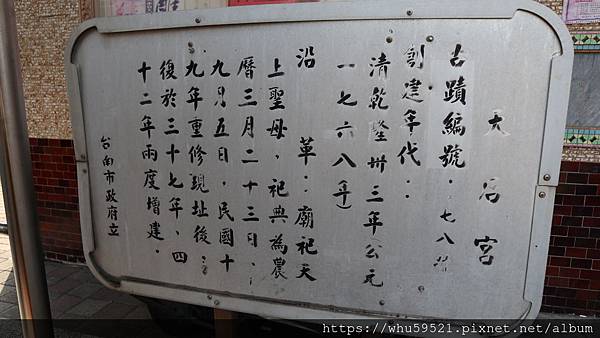 天后宮
古蹟編號：七八號
創建年代：
清乾隆卅三年（公元
一七六八年）
沿　革：廟祀天
上聖母，祀典為農
曆三月二十三日、
九月五日。民國十
九年重修現址後，
復於三十七年、四
十二年兩度增建。
台南市政府立
https://whu59521.pixnet.net/album